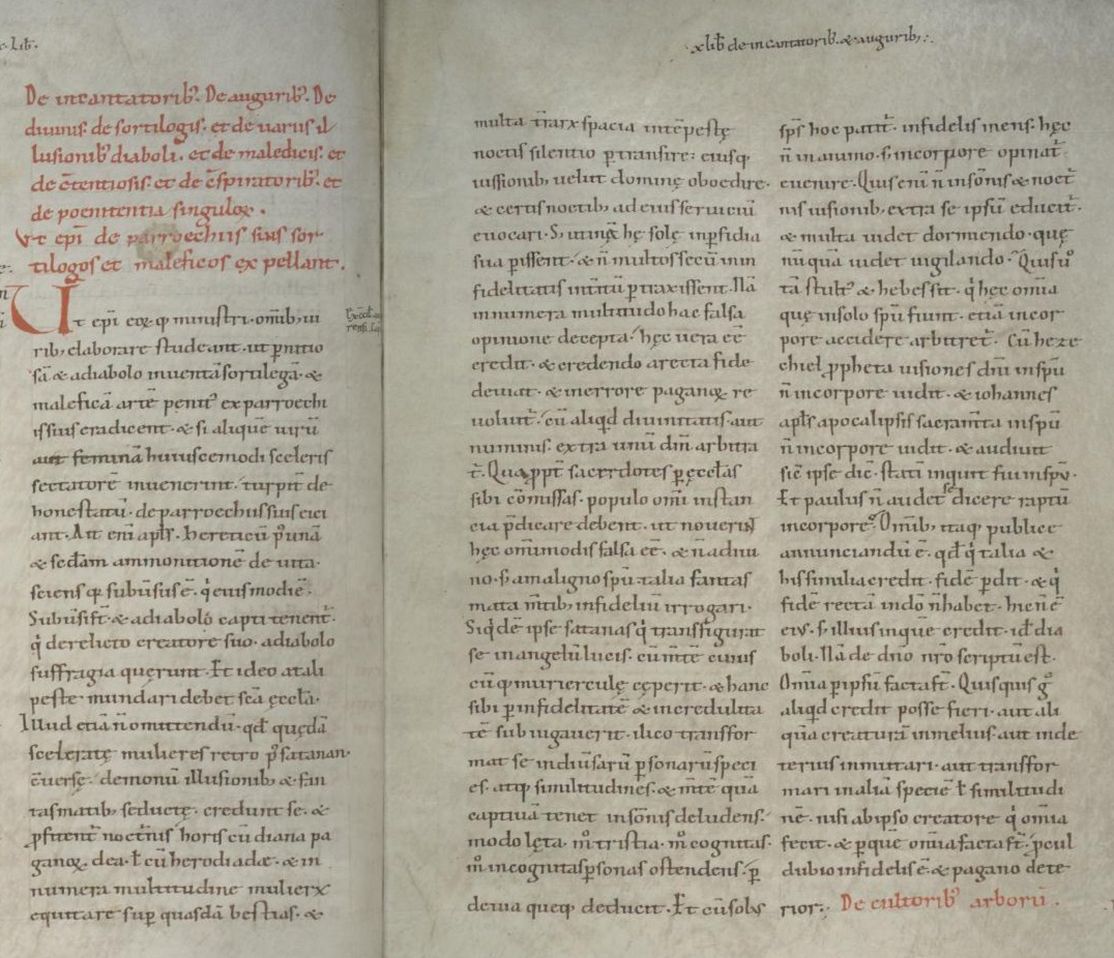 x lib̄ de incantatorib᷒. & augurib;.
De incantatorib᷒. De augurib᷒. De
diuinis. de sortilogis. et de uariis il
lusionib᷒ diaboli. et de maledicis. et
de c̄tentiosis. et de c̄spiratorib᷒. et
de poenitentia singuloꝝ.
Vt ep̄i de parroechiis suis sor
tilogos et maleficos expellant.
Ut ep̄i eoꝝq; ministri. om̄ib; ui
rib; elaborare studeant. ut p̄nitio
sā & a diabolo inuentā sortilegā. &
maleficā artē penit᷒ ex parroechi
is suis eradicent. & si aliquē uirū
aut feminā huiuscemodi sceleris
sectatorē inuenerint. turpit̄ de
honestatū. de parroechiis suis eici
ant. Ait eni apl̄s. hereticū p᷒ unā
& scd̄am ammonitionē deuita.
sciens q; subūsus ē. q̇ eiusmodi ē.
Subūsi st̄. & a diabolo capti tenent̄.
q̇ derelicto creatore suo. a diabolo
suffragia querunt. Et ideo a tali
peste mundari debet sc̄a ęccl̄a.
Illud etiā n̄ omittendū. qd̄ quędā
sceleratę mulieres retro p᷒ satanan
c̄uersę. demonū illusionib; & fan
tasmatib; seductę. credunt se. &
ꝓfitent̄ nocturnis horis cū diana pa
ganoꝝ dea. ł cū herodiade. & in
numera multitudine mulierꝝ
equitare sup̄ quasdā bestias. &
multa terrarꝝ spacia intēpestę
noctis silentio ꝑtransire. eiusq;
iussionib; uelut dominę oboedire.
& certis noctib; ad eius seruiciū
euocari. S; utinā hę solę in ꝑfidia
sua ꝑissent. & n̄ multos secū in in
fidelitatis int̄itū ꝑtraxissent. Nā
innumera multitudo hac falsa
opinione decepta. hęc uera eē
credit. & credendo a recta fide
deuiat. & in errore paganoꝝ re
uoluit̄. cū aliqd̄ diuinitatis aut
numinis. extra unū dm̄ arbitra
t̄. Quapp̄t̄ sacerdotes ꝑ ęccl̄as
sibi cōmissas. populo om̄i instan
cia p̄dicare debent. ut nouerint
hęc om̄imodis falsa eē. & n̄ a diui
no. s; a maligno spū talia fantas
mata mtib; infideliū irrogari.
Siqdē ipse satanas q̇ transfigurat
se in angelū lucis. cū m̄tē cuius
cūq; mulierculę cęperit. & hanc
sibi ꝑ infidelitatē & incredulita
tē subiugauerit. ilico transfor
mat se in diūsarū ꝑsonarū speci
es. atq; similitudines. & m̄tē quā
captiuā tenet in somnis deludens.
modo lęta. m̊ tristia. m̊ cognitas.
m̊ incognitas ꝑsonas ostendens. ꝑ
deuia quęq; deducit. Et cū solus
sp̄s hoc patit̄. infidelis mens. hęc
n̄ in animo. s; in corpore opinat̄
euenire. Quis enī n̄ in somnis & noct̄
nis uisionib; extra se ipsū educit̄.
& multa uidet dormiendo. quę
nūquā uidet uigilando. Quis uº
tā stult᷒ & hebes sit. q̇ hęc omīa
quę in solo spū fiunt. etiā in cor
pore accidere arbitret̄. Cū heze
chiel ꝓpheta uisiones dm̄i in spū
n̄ in corpore uidit. & iohannes
apl̄s apocalipsis sacramta in spū
n̄ in corpore uidit. & audiuit
sic̄ ipse dic̄. statī inquit fui in spū.
Et paulus n̄ audet dicere raptū
in corpore. Om̄ib; itaq; publice
annunciandū ē. qd̄ q̇ talia &
his similia credit. fidē ꝑdit. & q̇
fidē rectā in do n̄ habet. hic n̄ ē
eius. s; illius in quē credit. id̄ dia
boli. Nā de dn̄o nr̄o scriptū est.
Omīa ꝑ ipsū facta st̄. Quisquis gº
aliqd̄ credit posse fieri. aut ali
quā creaturā in melius. aut in de
terius inmutari. aut transfor
mari in aliā speciē ł similitudi
nē. nisi ab ipso creatore q̇ omīa
fecit. & ꝑ quē omīa facta st̄. ꝓcul
dubio infidelis ē. & pagano dete
rior. De cultorib᷒ arborū.